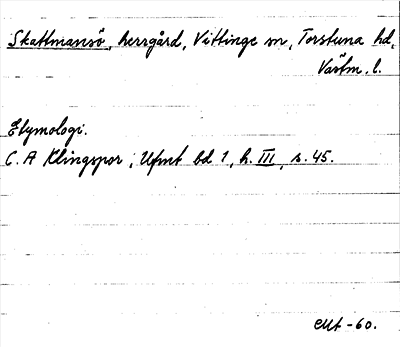 Skattmansö, herrgård, Vittinge sn, Torstuna hd,
Västm. l.
Etymologi.
C. A Klingspor, Ufmt bd 1, h. III, s. 45.
EMt -60.